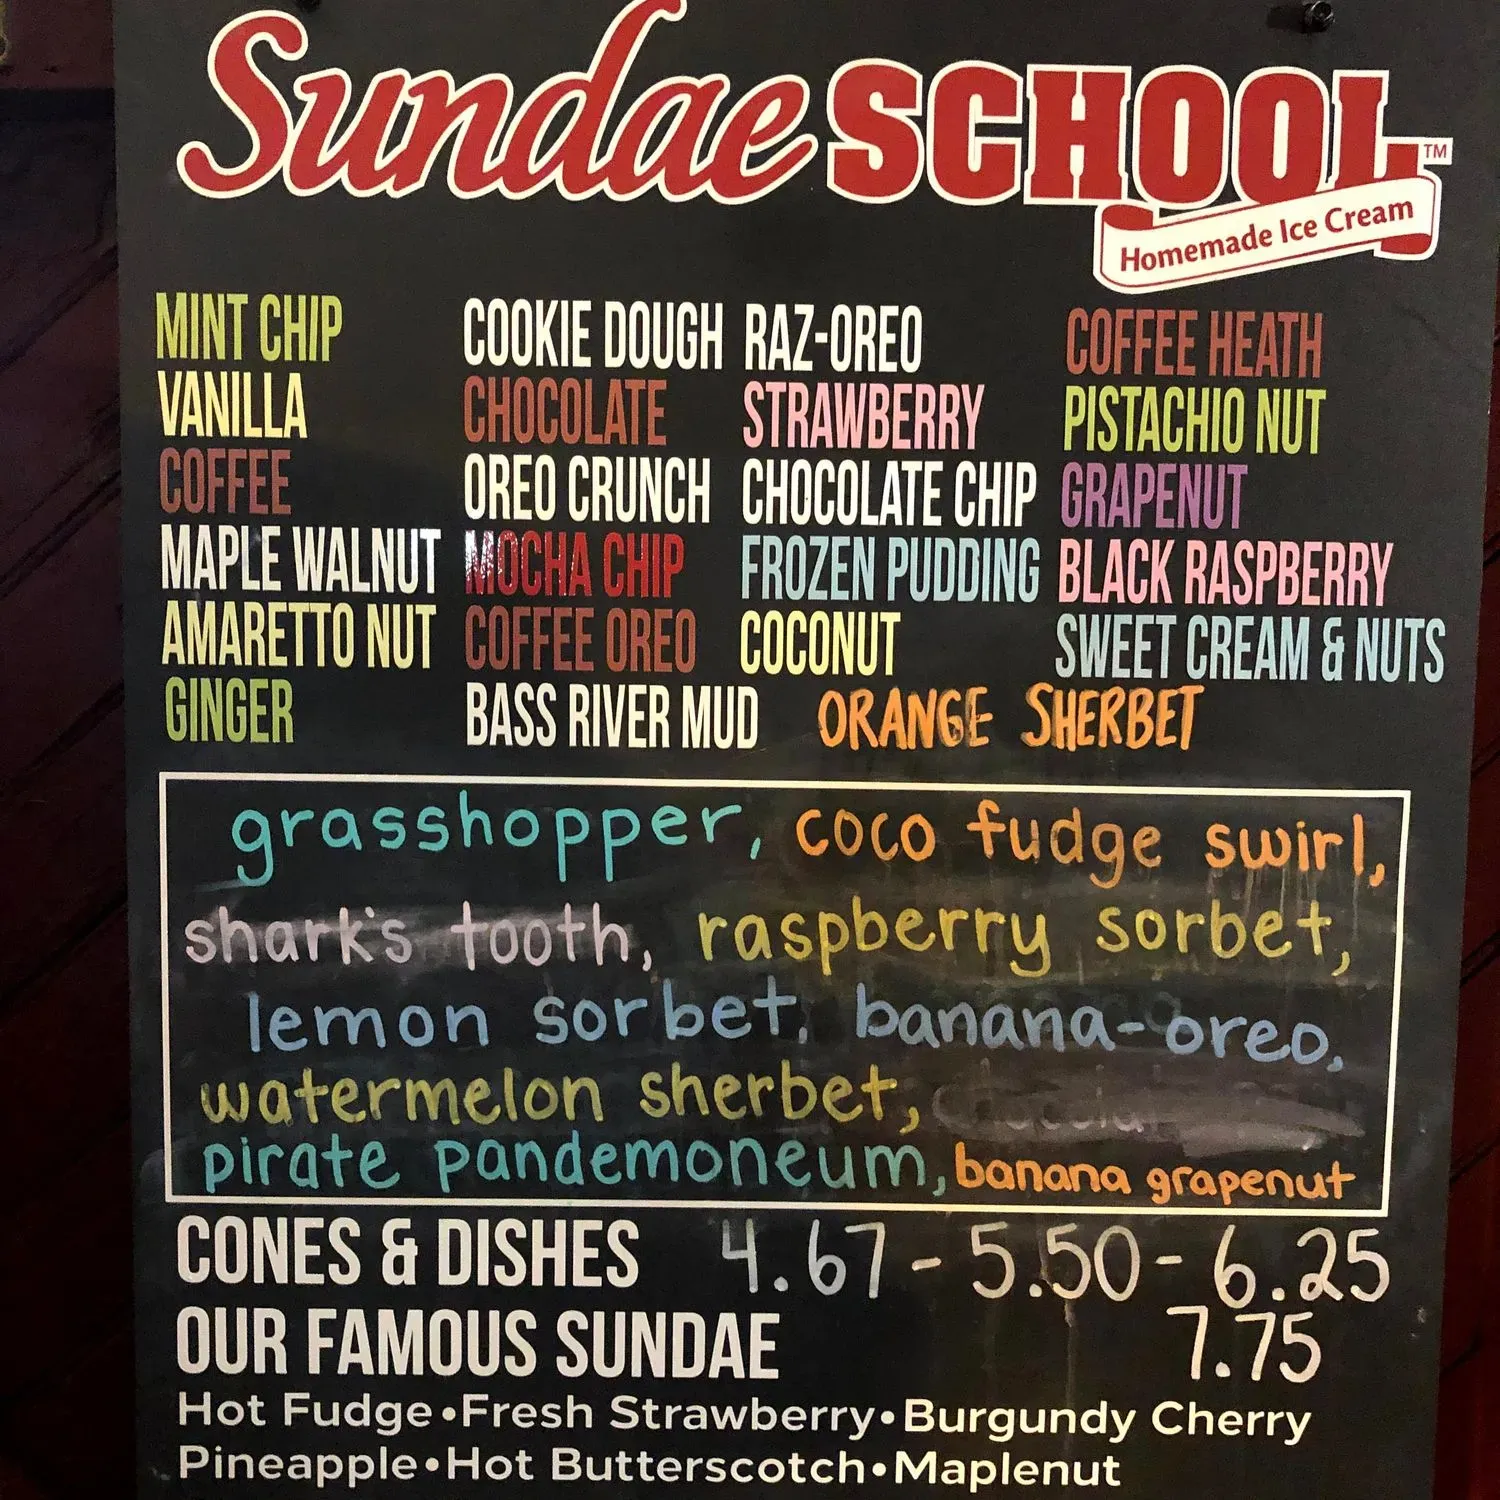 Sundae SCHOOL™
Homemade Ice Cream
MINT CHIP COOKIE DOUGH RAZ-OREO COFFEE HEATH
VANILLA CHOCOLATE STRAWBERRY PISTACHIO NUT
COFFEE OREO CRUNCH CHOCOLATE CHIP GRAPENUT
MAPLE WALNUT MOCHA CHIP FROZEN PUDDING BLACK RASPBERRY
AMARETTO NUT COFFEE OREO COCONUT SWEET CREAM & NUTS
GINGER BASS RIVER MUD ORANGE SHERBET
grasshopper, coco fudge swirl,
shark's tooth, raspberry sorbet,
lemon sorbet, banana-oreo,
watermelon sherbet,
pirate pandemoneum, banana grapenut
CONES & DISHES 4.67 - 5.50 - 6.25
OUR FAMOUS SUNDAE 7.75
Hot Fudge•Fresh Strawberry•Burgundy Cherry
Pineapple•Hot Butterscotch•Maplenut